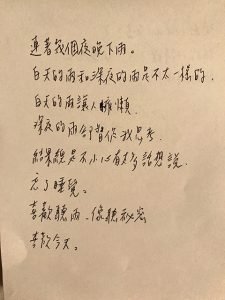 連著幾個夜晚下雨。
白天的雨和深夜的雨是不太一樣的.
白天的雨讓人慵懶.
深夜的雨會督促我思考.
結果總是不小心有太多話想說.
忘了睡覺。
喜歡聽雨、像聽祕密
喜歡今天。